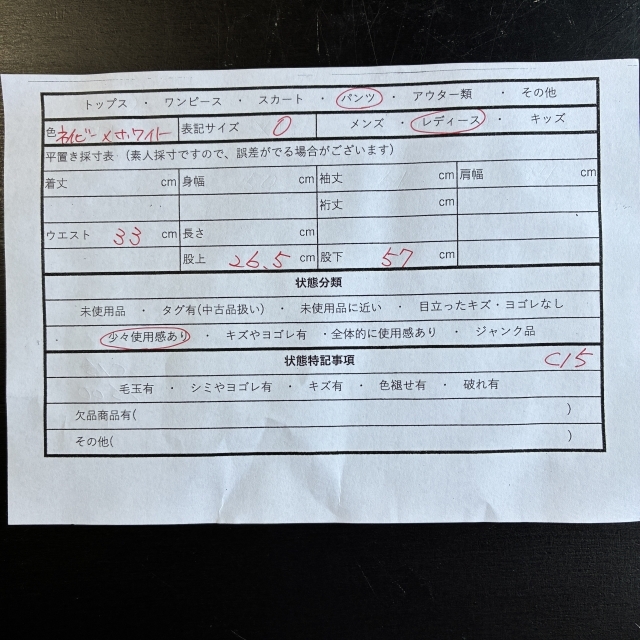 トップス ・ ワンピース ・ スカート ・ パンツ ・ アウター類 ・ その他
色 ネイビー×ホワイト 表記サイズ 0 メンズ ・ レディース ・ キッズ
平置き採寸表 (素人採寸ですので、誤差がでる場合がございます)
着丈 cm 身幅 cm 袖丈 cm 肩幅 cm
裄丈 cm
ウエスト 33 cm 長さ
股上 26.5 cm 股下 57 cm
状態分類
未使用品 ・ タグ有(中古品扱い) ・ 未使用品に近い ・ 目立ったキズ・ヨゴレなし
少々使用感あり ・ キズやヨゴレ有 ・全体的に使用感あり ・ ジャンク品
状態特記事項 C15
毛玉有 ・ シミやヨゴレ有 ・ キズ有 ・ 色褪せ有 ・ 破れ有
欠品商品有( )
その他( )